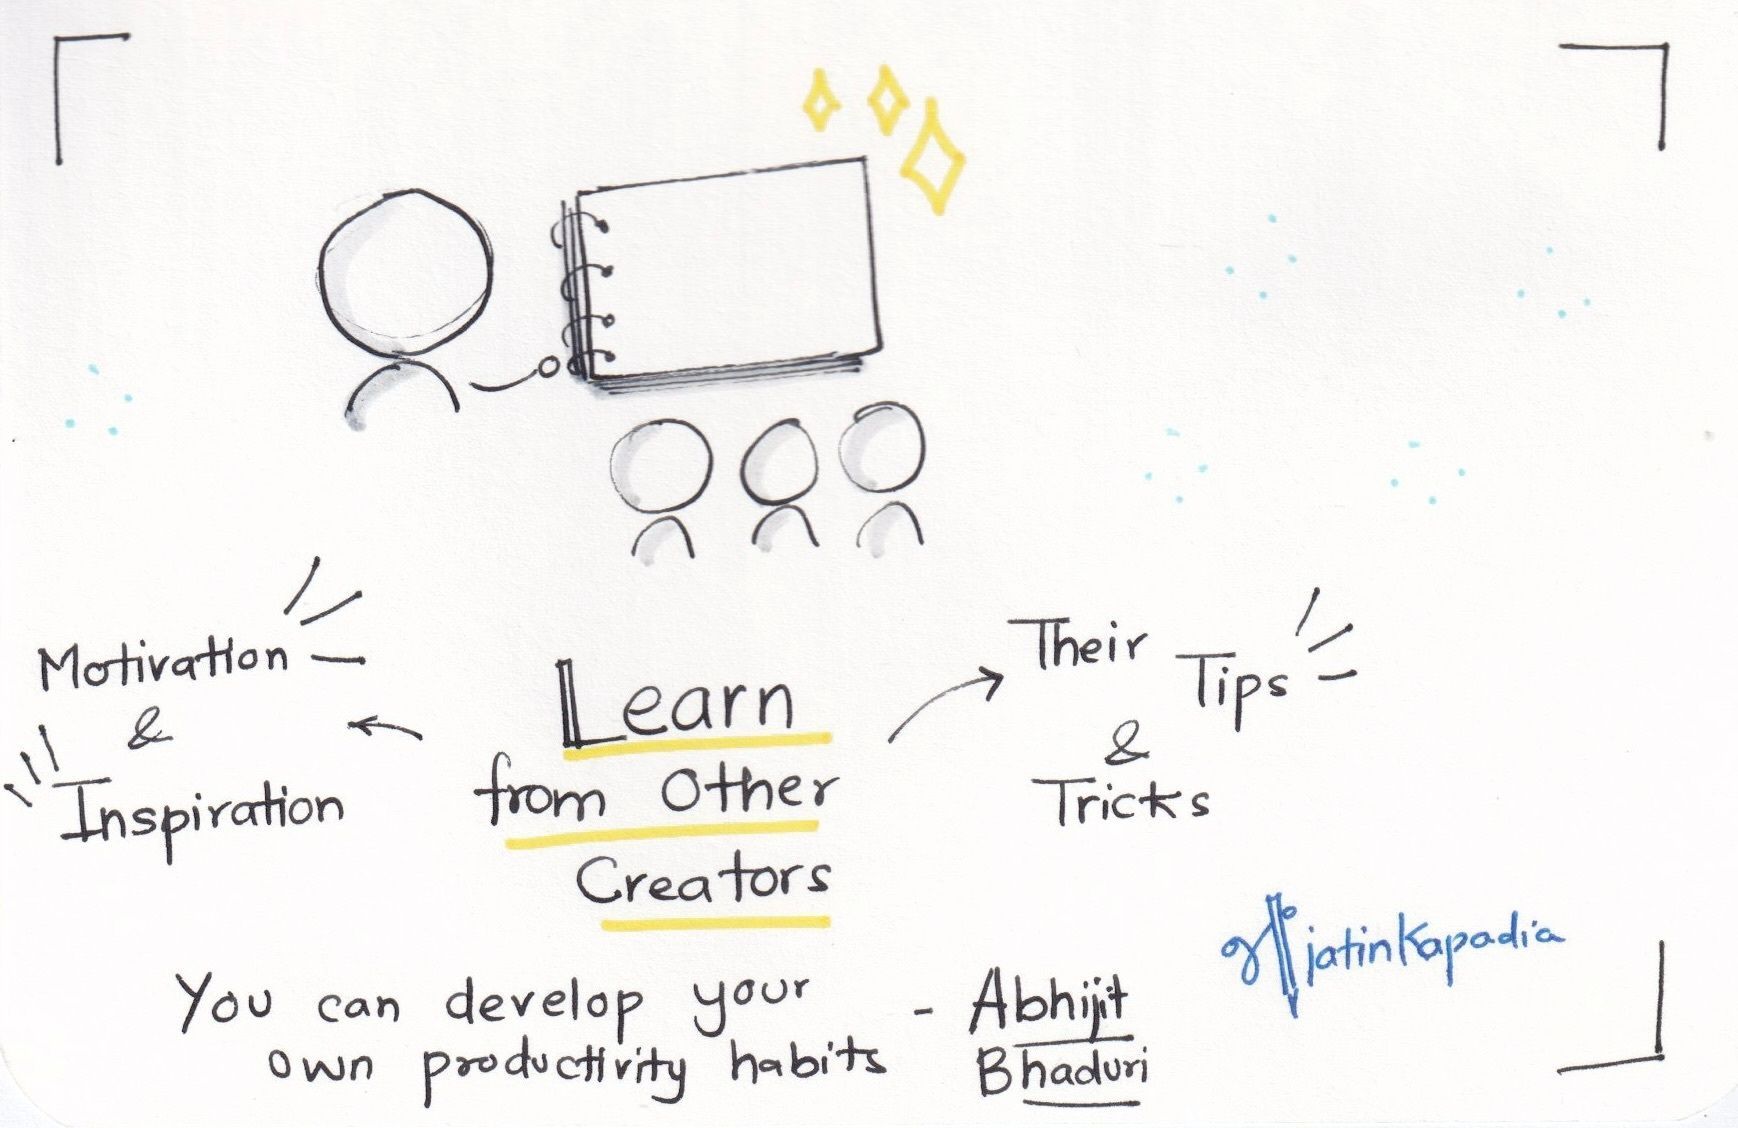 Motivation
&
Inspiration
Learn
from Other
Creators
Their
Tips
&
Tricks
You can develop your
own productivity habits
- Abhijit
Bhaduri
jatinkapadia